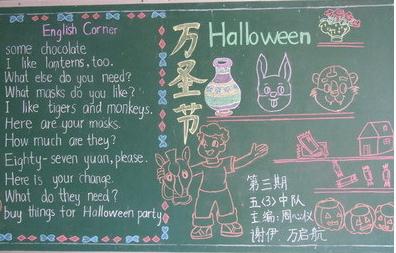 English Corner
some chocolate
I like lanterns, too.
What else do you need?
What masks do you like?
I like tigers and monkeys.
Here are your masks.
How much are they?
Eighty-seven yuan, please.
Here is your change.
What do they need?
buy things for Halloween party
万圣节
Halloween
第三期
五(3)中队
主编:周心仪
谢伊 万启航